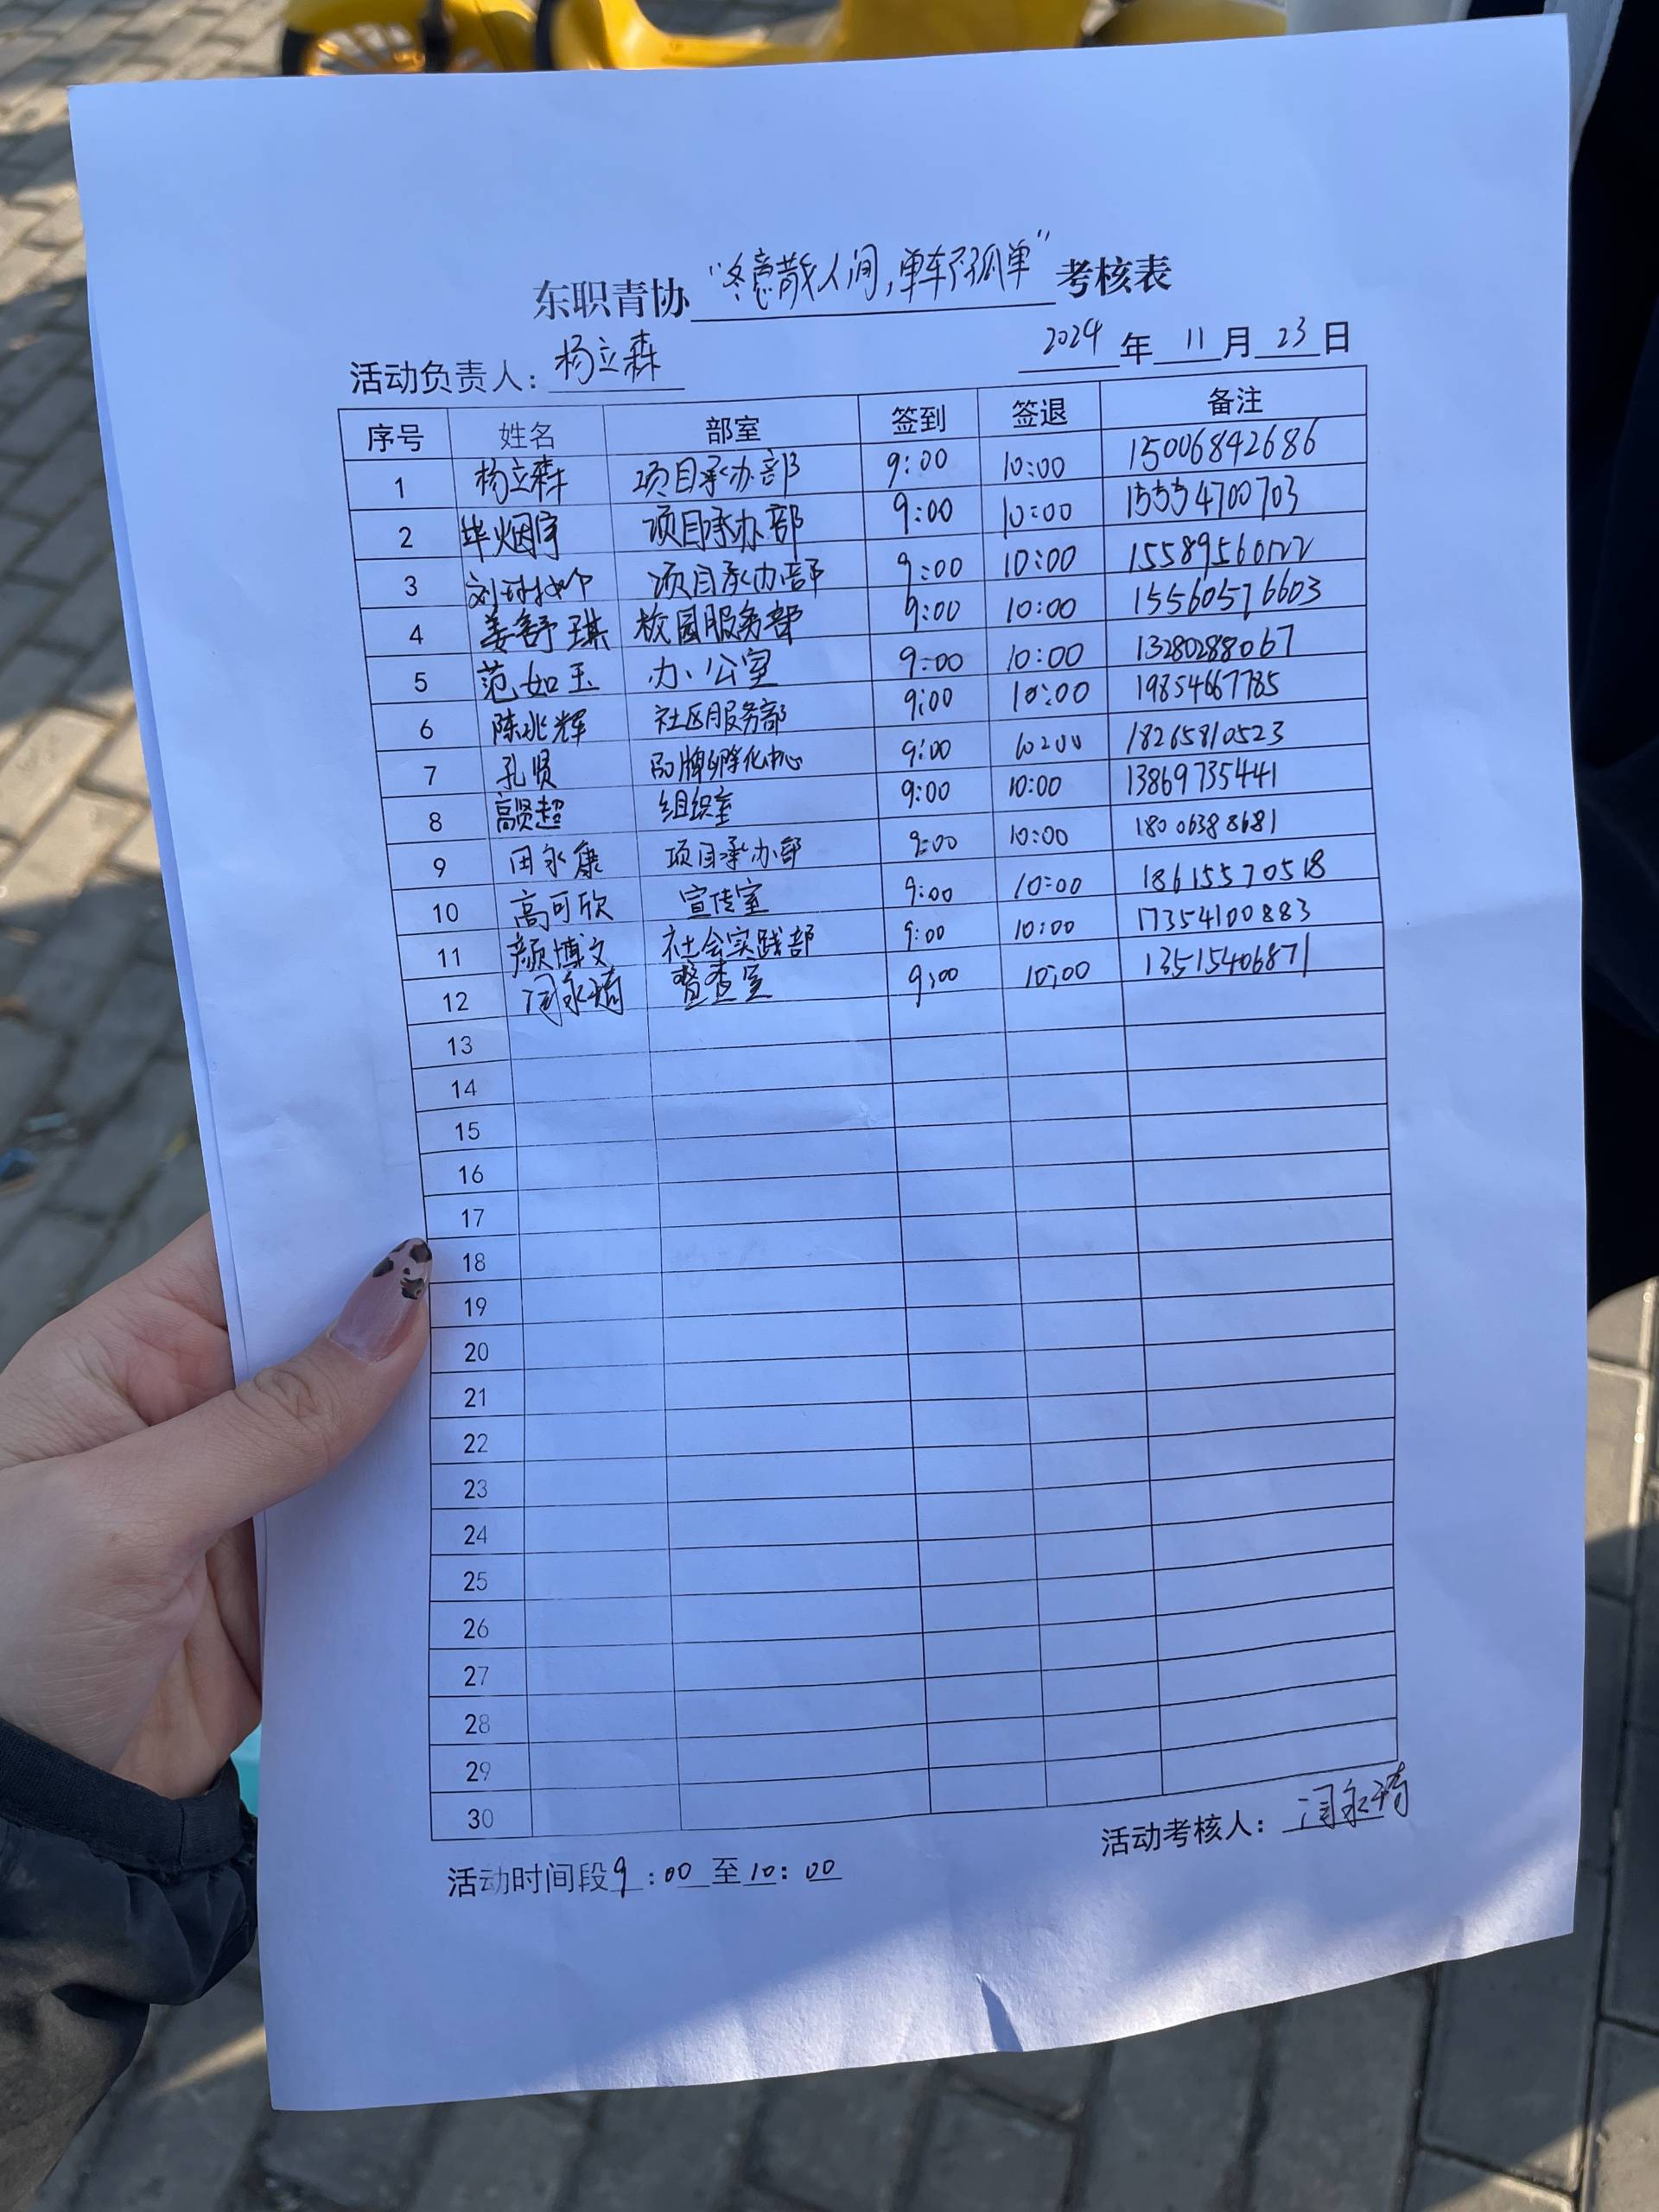 东职青协“冬意散人间，单车不孤单”考核表
活动负责人：杨立森 2024年11月23日
序号 姓名 部室 签到 签退 备注
1 杨立森 项目承办部 9:00 10:00 15006842686
2 毕烟宇 项目承办部 9:00 10:00 15554700703
3 项目承办部 9:00 10:00
4 姜舒琪 校园服务部 9:00 10:00 15560576603
5 范如玉 办公室 9:00 10:00 13280288067
6 陈兆辉 社区服务部 9:00 10:00 19854667785
7 孔贤 品牌孵化中心 9:00 10:00 18265810523
8 高贤超 组织室 9:00 10:00 13869735441
9 田永康 项目承办部 9:00 10:00 18006388681
10 高可欣 宣传室 9:00 10:00 18615570518
11 颜博文 社会实践部 9:00 10:00 17354100883
12 闫永琦 督查室 9:00 10:00 13515406871
13
14
15
16
17
18
19
20
21
22
23
24
25
26
27
28
29
30
活动考核人：闫永琦
活动时间段9:00至10:00